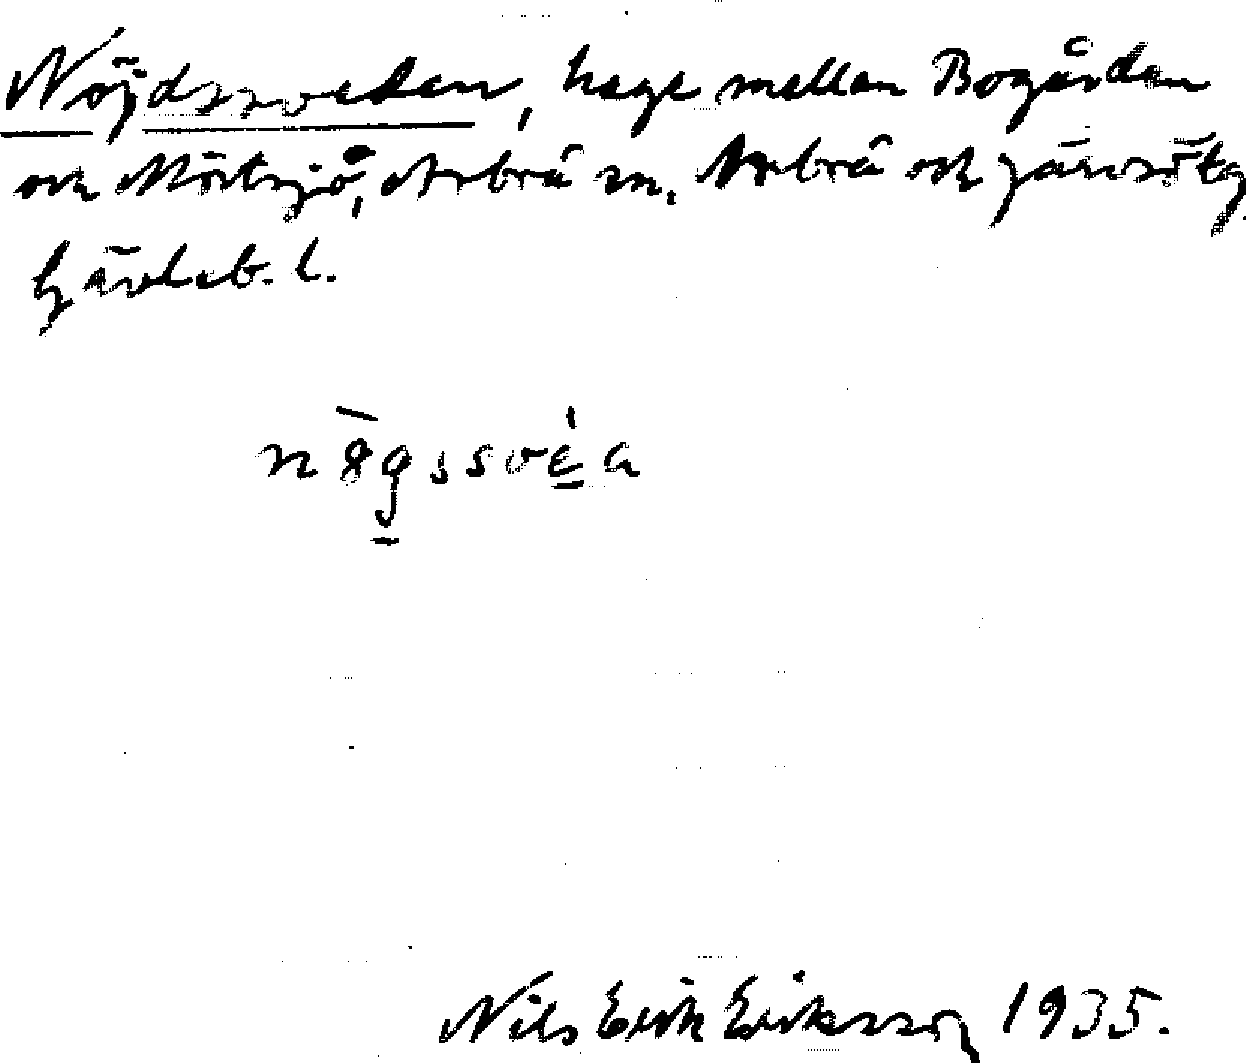 Nöjdssveden, hage mellan Bogården
och Mörtsjö, Arbrå sn, Arbrå och Järvsö tg
Gävleb. l.
Nils Erik Eriksson 1935.